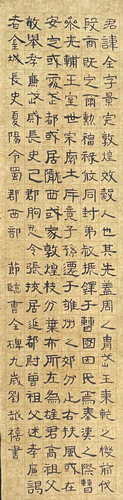 君諱全字景完敦煌效穀人也其先蓋周之胄武王秉乾之機翦伐
殷商既定爾勳福祿攸同封弟叔振鐸于曹國因氏焉秦漢之際曹
參夾輔王室世宗廓土斥竟子孫遷于雍州之郊分止右扶風或在
安定或處武都或居隴西或家敦煌枝分葉布所在為雄君高祖父
敏舉孝廉武威長史巴郡朐忍令張掖居延都尉曾祖父述孝廉謁
者金城長史夏陽令蜀郡西部 節臨曹全碑九歲劉禧書